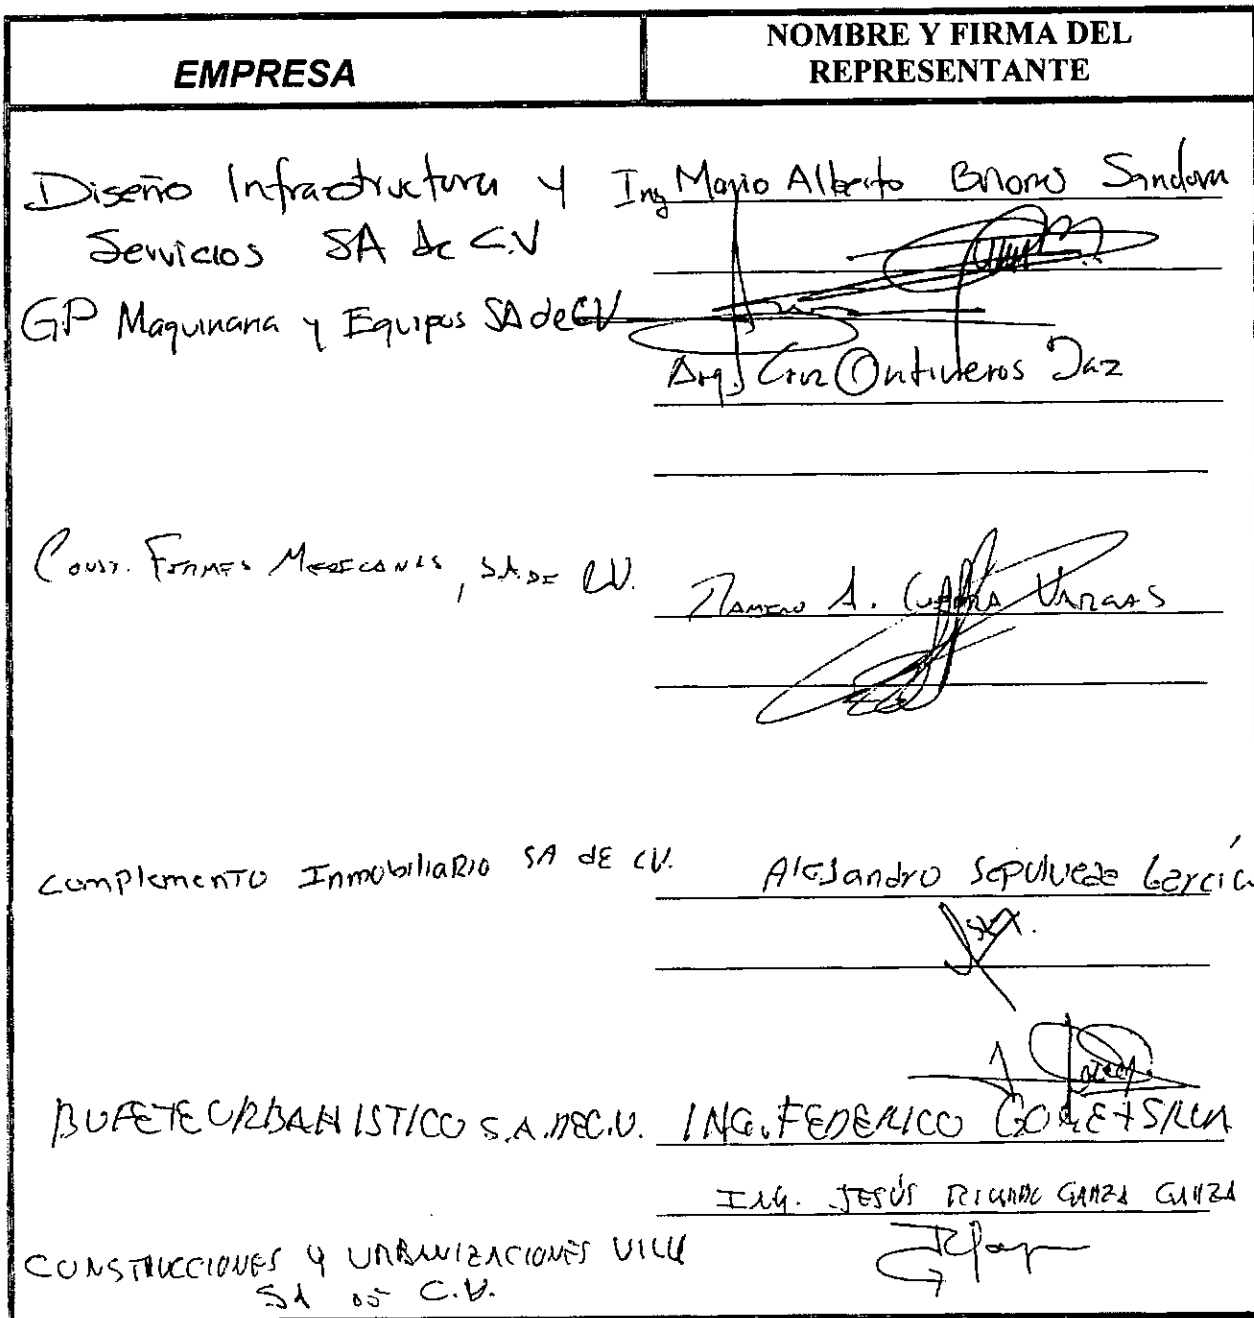 EMPRESA
NOMBRE Y FIRMA DEL
REPRESENTANTE
Diseño Infraestructura y
Servicios SA de C.V
Ing Mario Alberto Briones Sandova
GP Maquinaria y Equipos SA de CV
Arq. Cruz Ontiveros
Const. Firmes Mexicanos, S.A. DE C.V.
A. Vargas
Complemento Inmobiliario SA dE CV.
Alejandro Sepulveda Garcia
BUFETE URBANISTICO S.A. DE C.V.
ING. FEDERICO
ING. JESÚS RICARDO GARZA GARZA
CONSTRUCCIONES Y URBANIZACIONES
SA DE C.V.